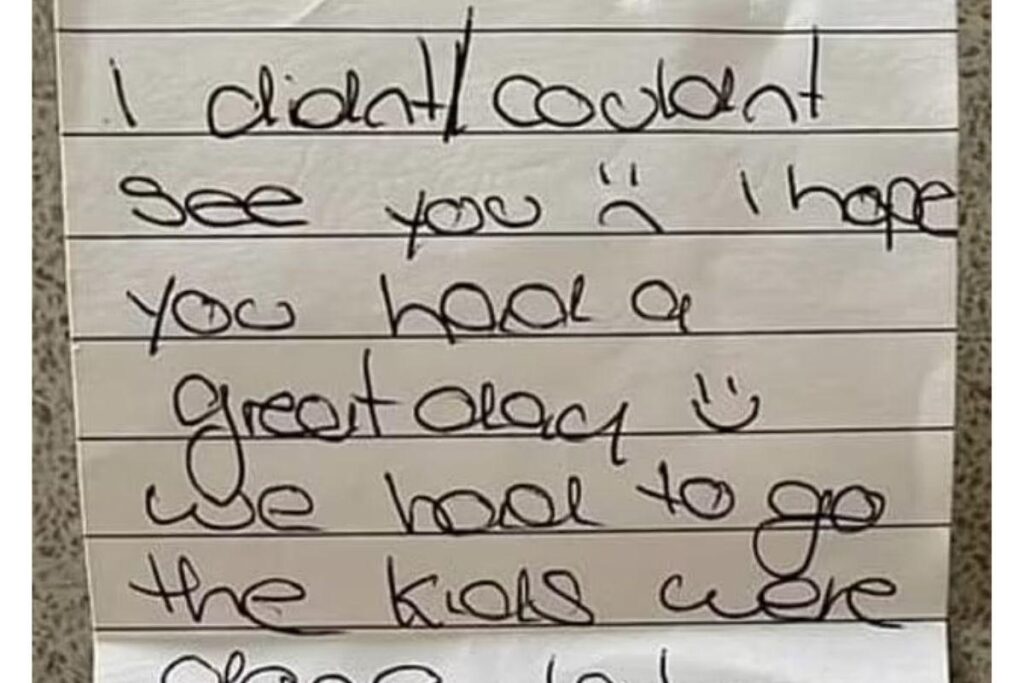 I didnt/couldnt
see you :( I hope
you had a
great day :)
we had to go
the kids were